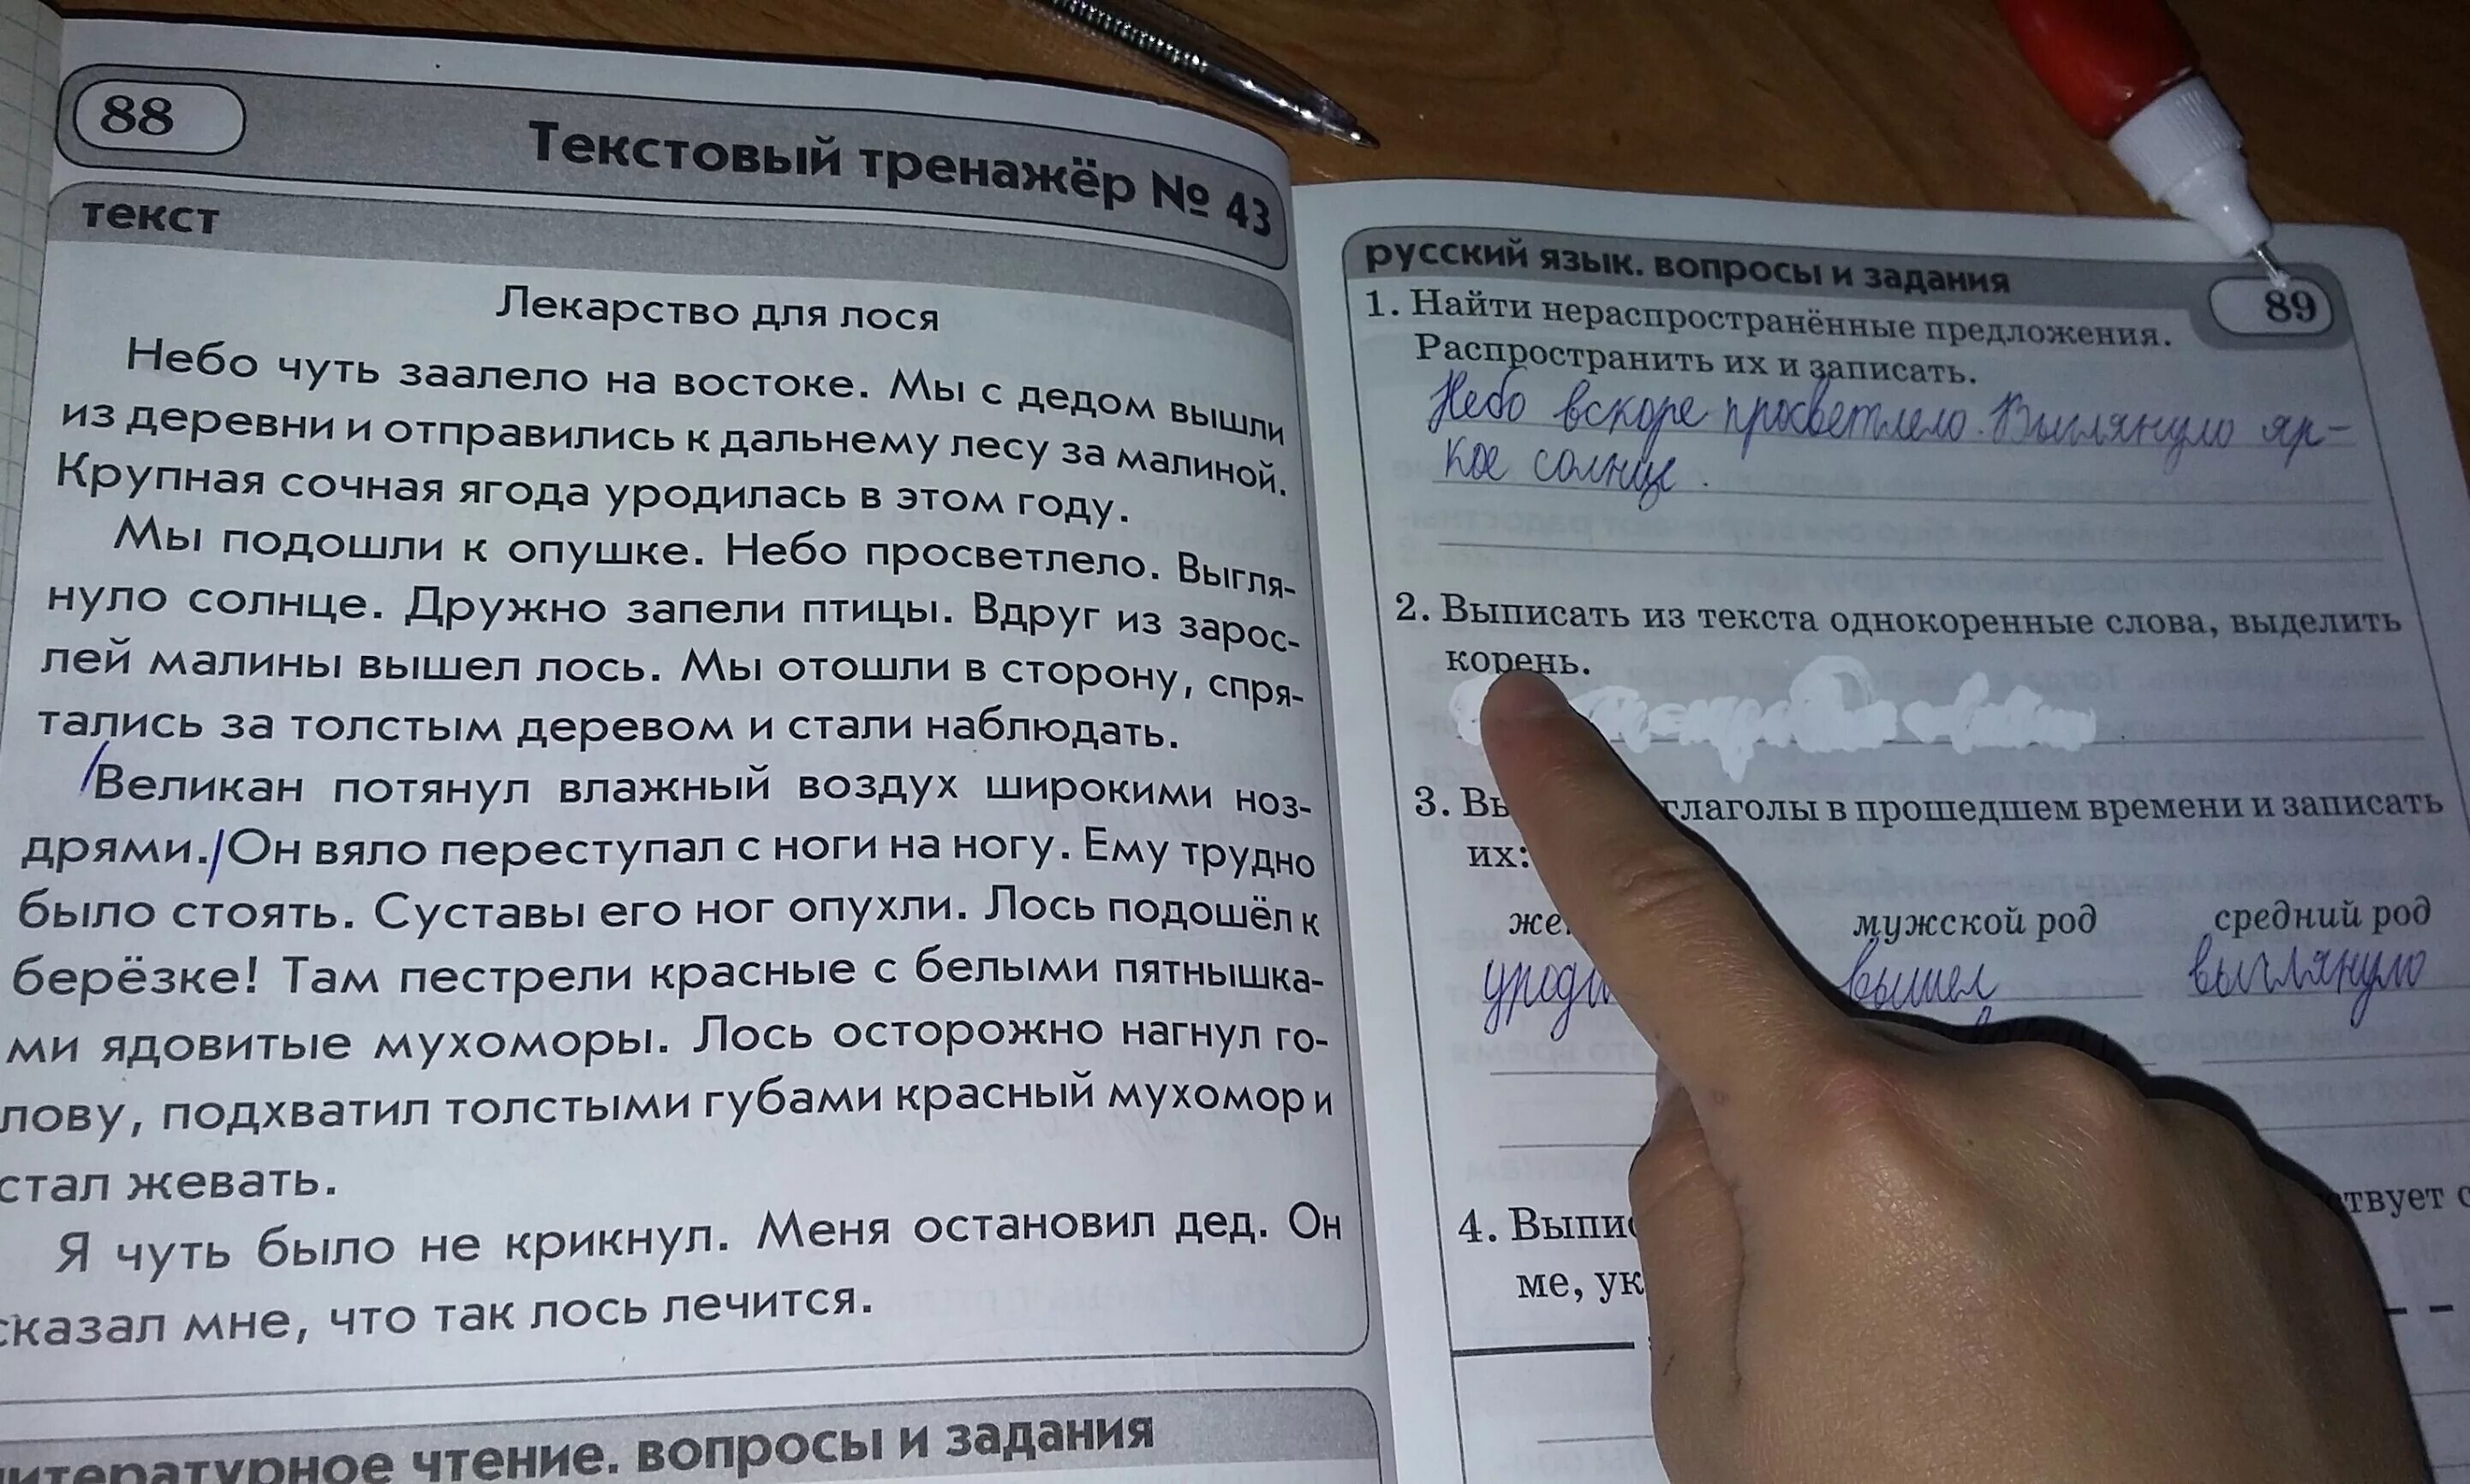 88
Текстовый тренажёр № 43
текст
Лекарство для лося
Небо чуть заалело на востоке. Мы с дедом вышли
из деревни и отправились к дальнему лесу за малиной.
Крупная сочная ягода уродилась в этом году.
Мы подошли к опушке. Небо просветлело. Выгля-
нуло солнце. Дружно запели птицы. Вдруг из зарос-
лей малины вышел лось. Мы отошли в сторону, спря-
тались за толстым деревом и стали наблюдать.
Великан потянул влажный воздух широкими ноз-
дрями. Он вяло переступал с ноги на ногу. Ему трудно
было стоять. Суставы его ног опухли. Лось подошёл к
берёзке! Там пестрели красные с белыми пятнышка-
ми ядовитые мухоморы. Лось осторожно нагнул го-
лову, подхватил толстыми губами красный мухомор и
стал жевать.
Я чуть было не крикнул. Меня остановил дед. Он
сказал мне, что так лось лечится.
итературное чтение. вопросы и задания
русский язык. вопросы и задания
89
1. Найти нераспространённые предложения.
Распространить их и записать.
Небо вскоре просветлело. Выглянуло яр-
кое солнце.
2. Выписать из текста однокоренные слова, выделить
корень.
3. Вы глаголы в прошедшем времени и записать
их:
же мужской род средний род
уроди вышел выглянуло
4. Выпис твует с
ме, ук